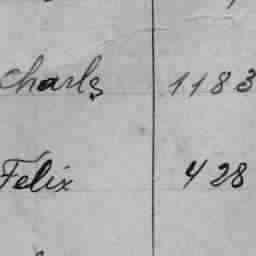 Charls 1183
Felix 428